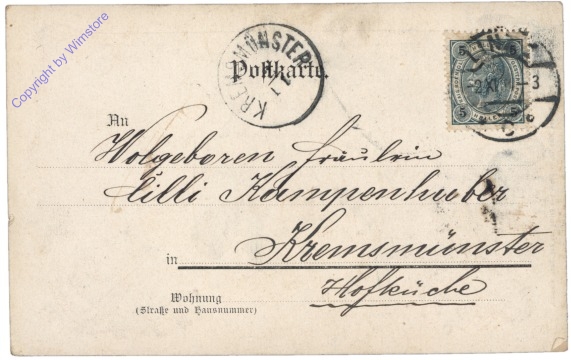 Copyright by Wimstore
KREMSMÜNSTER
LINZ
5 5
-2 XI -3
5 5
Postkarte.
An
Wolgeboren Fräulein
Cilli Kampenhuber
in Kremsmünster
Hofküche
Wohnung
(Straße und Hausnummer)